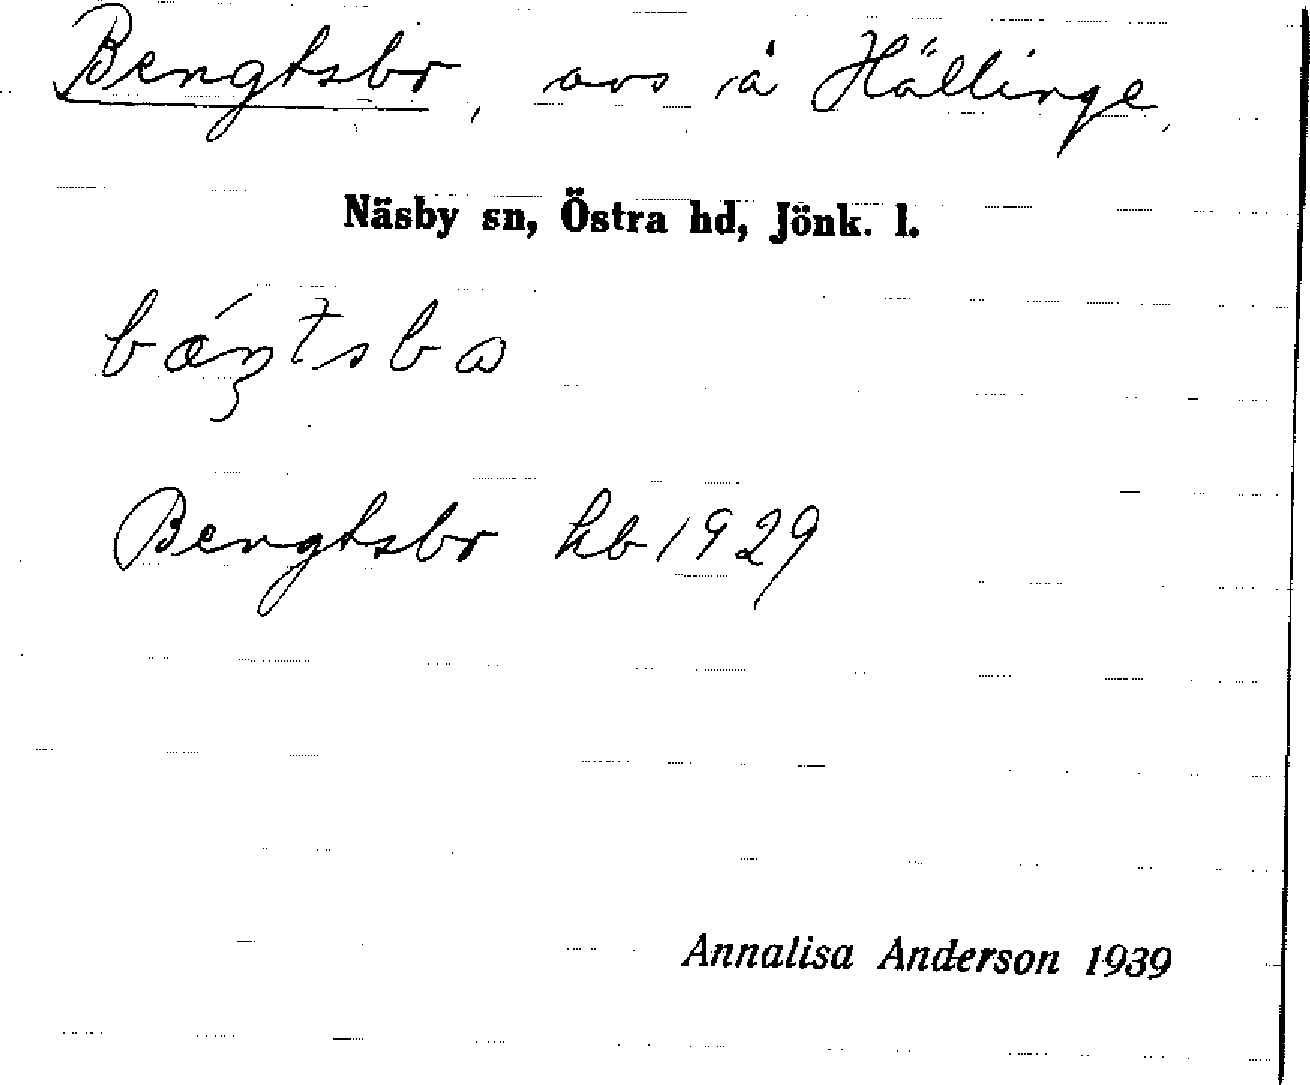 Bengtsbo, avs å Hällinge,
Näsby sn, Östra hd, Jönk. l.
bǽŋtsbω
Bengtsbo hb 1929
Annalisa Anderson 1939